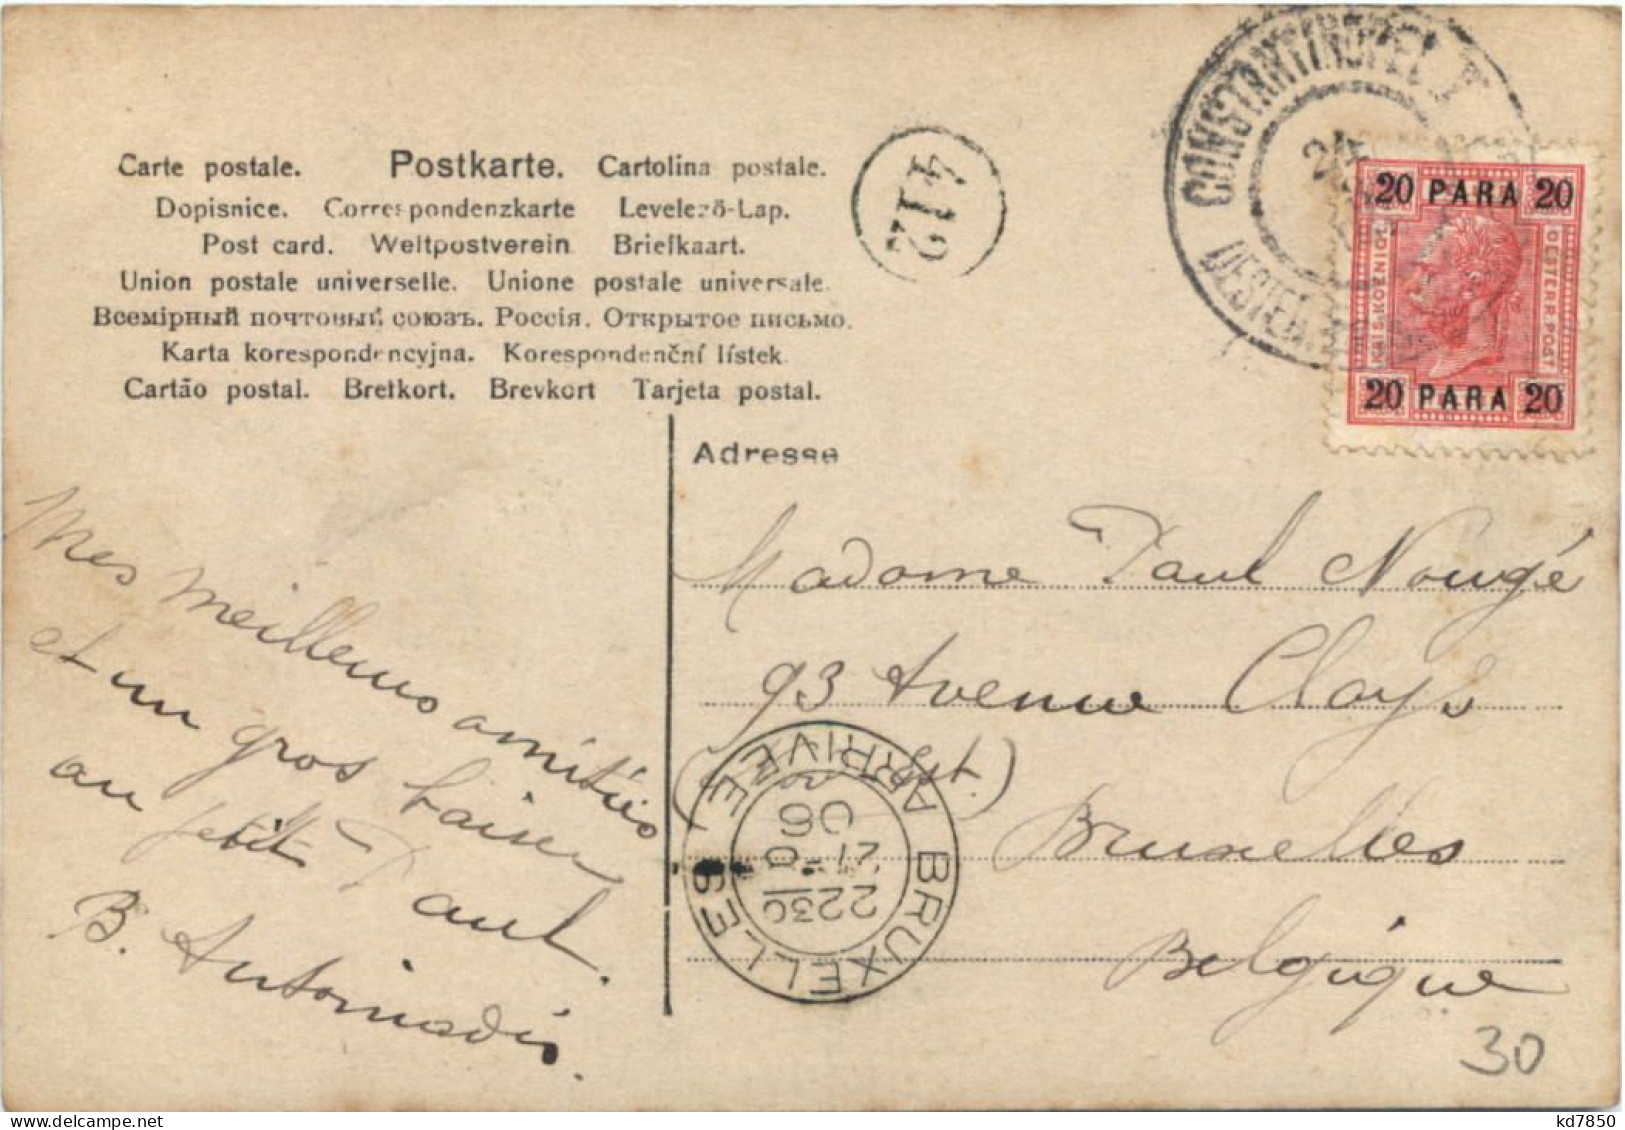 Carte postale. Postkarte. Cartolina postale.
Dopisnice. Correspondenzkarte Levelező-Lap.
Post card. Weltpostverein Briefkaart.
Union postale universelle. Unione postale universale.
Всемірный почтовый союзъ. Россія. Открытое письмо.
Karta korespondencyjna. Korespondenční lístek
Cartão postal. Brefkort. Brevkort Tarjeta postal.
412
CONSTANTINOPEL I
20 PARA 20
KAIS. KÖNIGL.
OESTERR. POST
20 PARA 20
Adresse
Mes meilleures amitiés
et un gros baiser
au petit Paul.
B. Antoniadis.
Madame Paul Nougé
93 Avenue Clays
Bruxelles
Belgique
BRUXELLES ARRIVEE
2230
06
30
kd7850